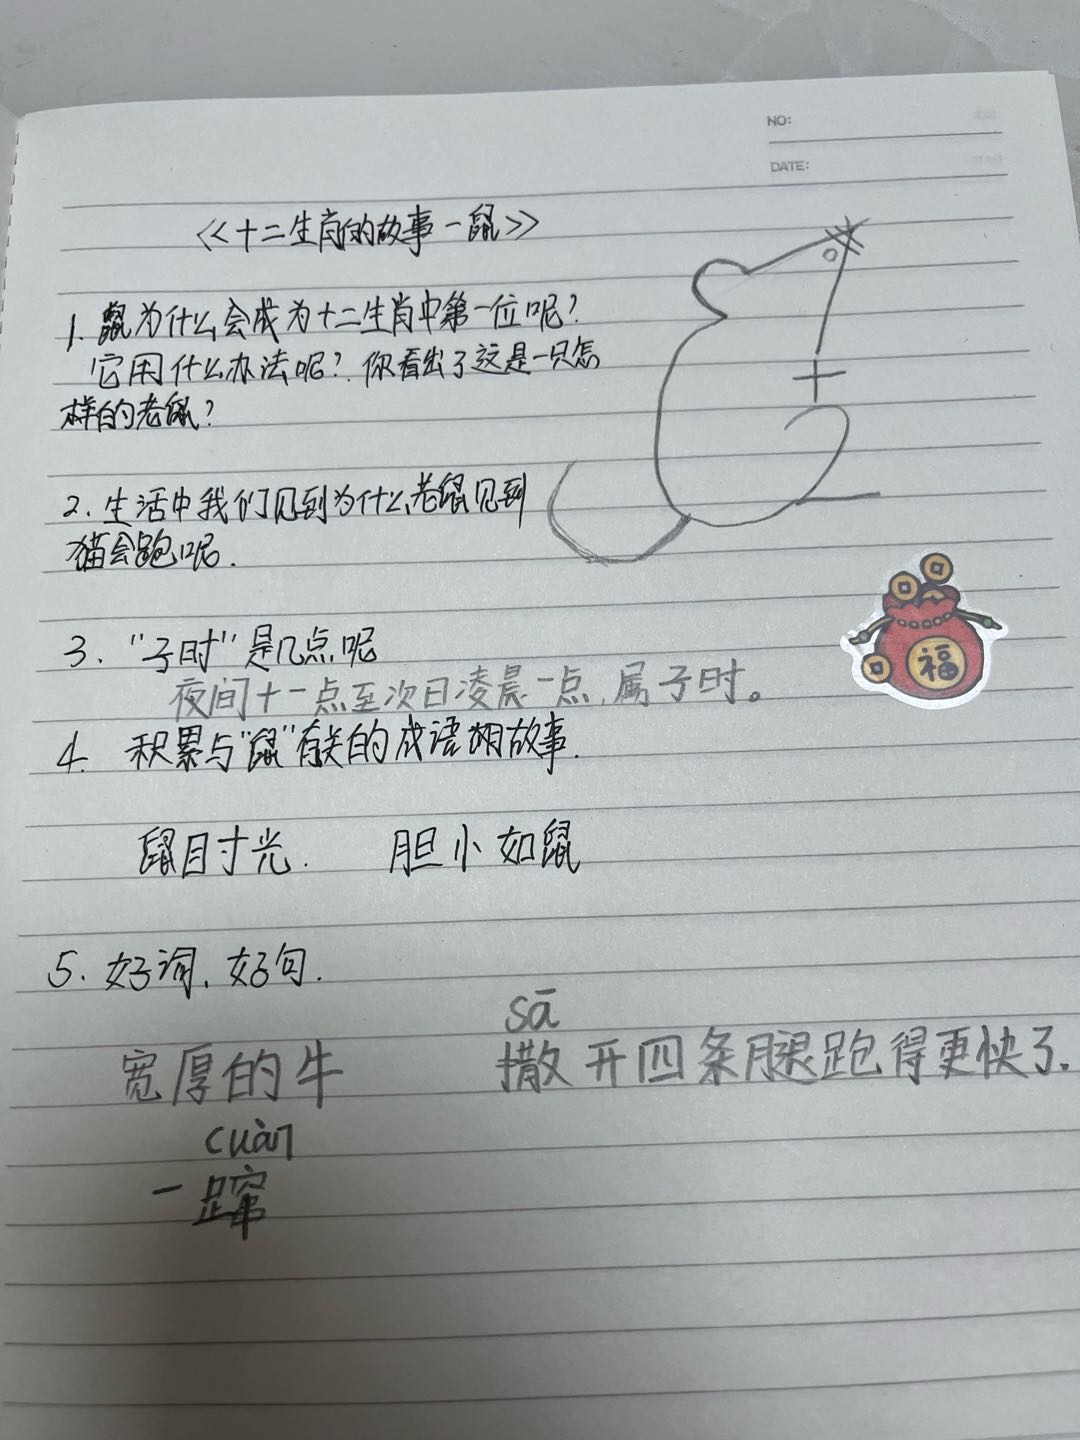 NO:
DATE:
《十二生肖的故事一鼠》
1. 鼠为什么会成为十二生肖中第一位呢?
它用什么办法呢? 你看出了这是一只怎
样的老鼠?
2. 生活中我们见到为什么老鼠见到
猫会跑呢.
3. "子时"是几点呢
夜间十一点至次日凌晨一点,属子时。
4. 积累与"鼠"有关的成语 故事.
鼠目寸光. 胆小如鼠
5. 好词、好句.
sā
宽厚的牛 撒开四条腿跑得更快了.
cuàn
一蹿
福